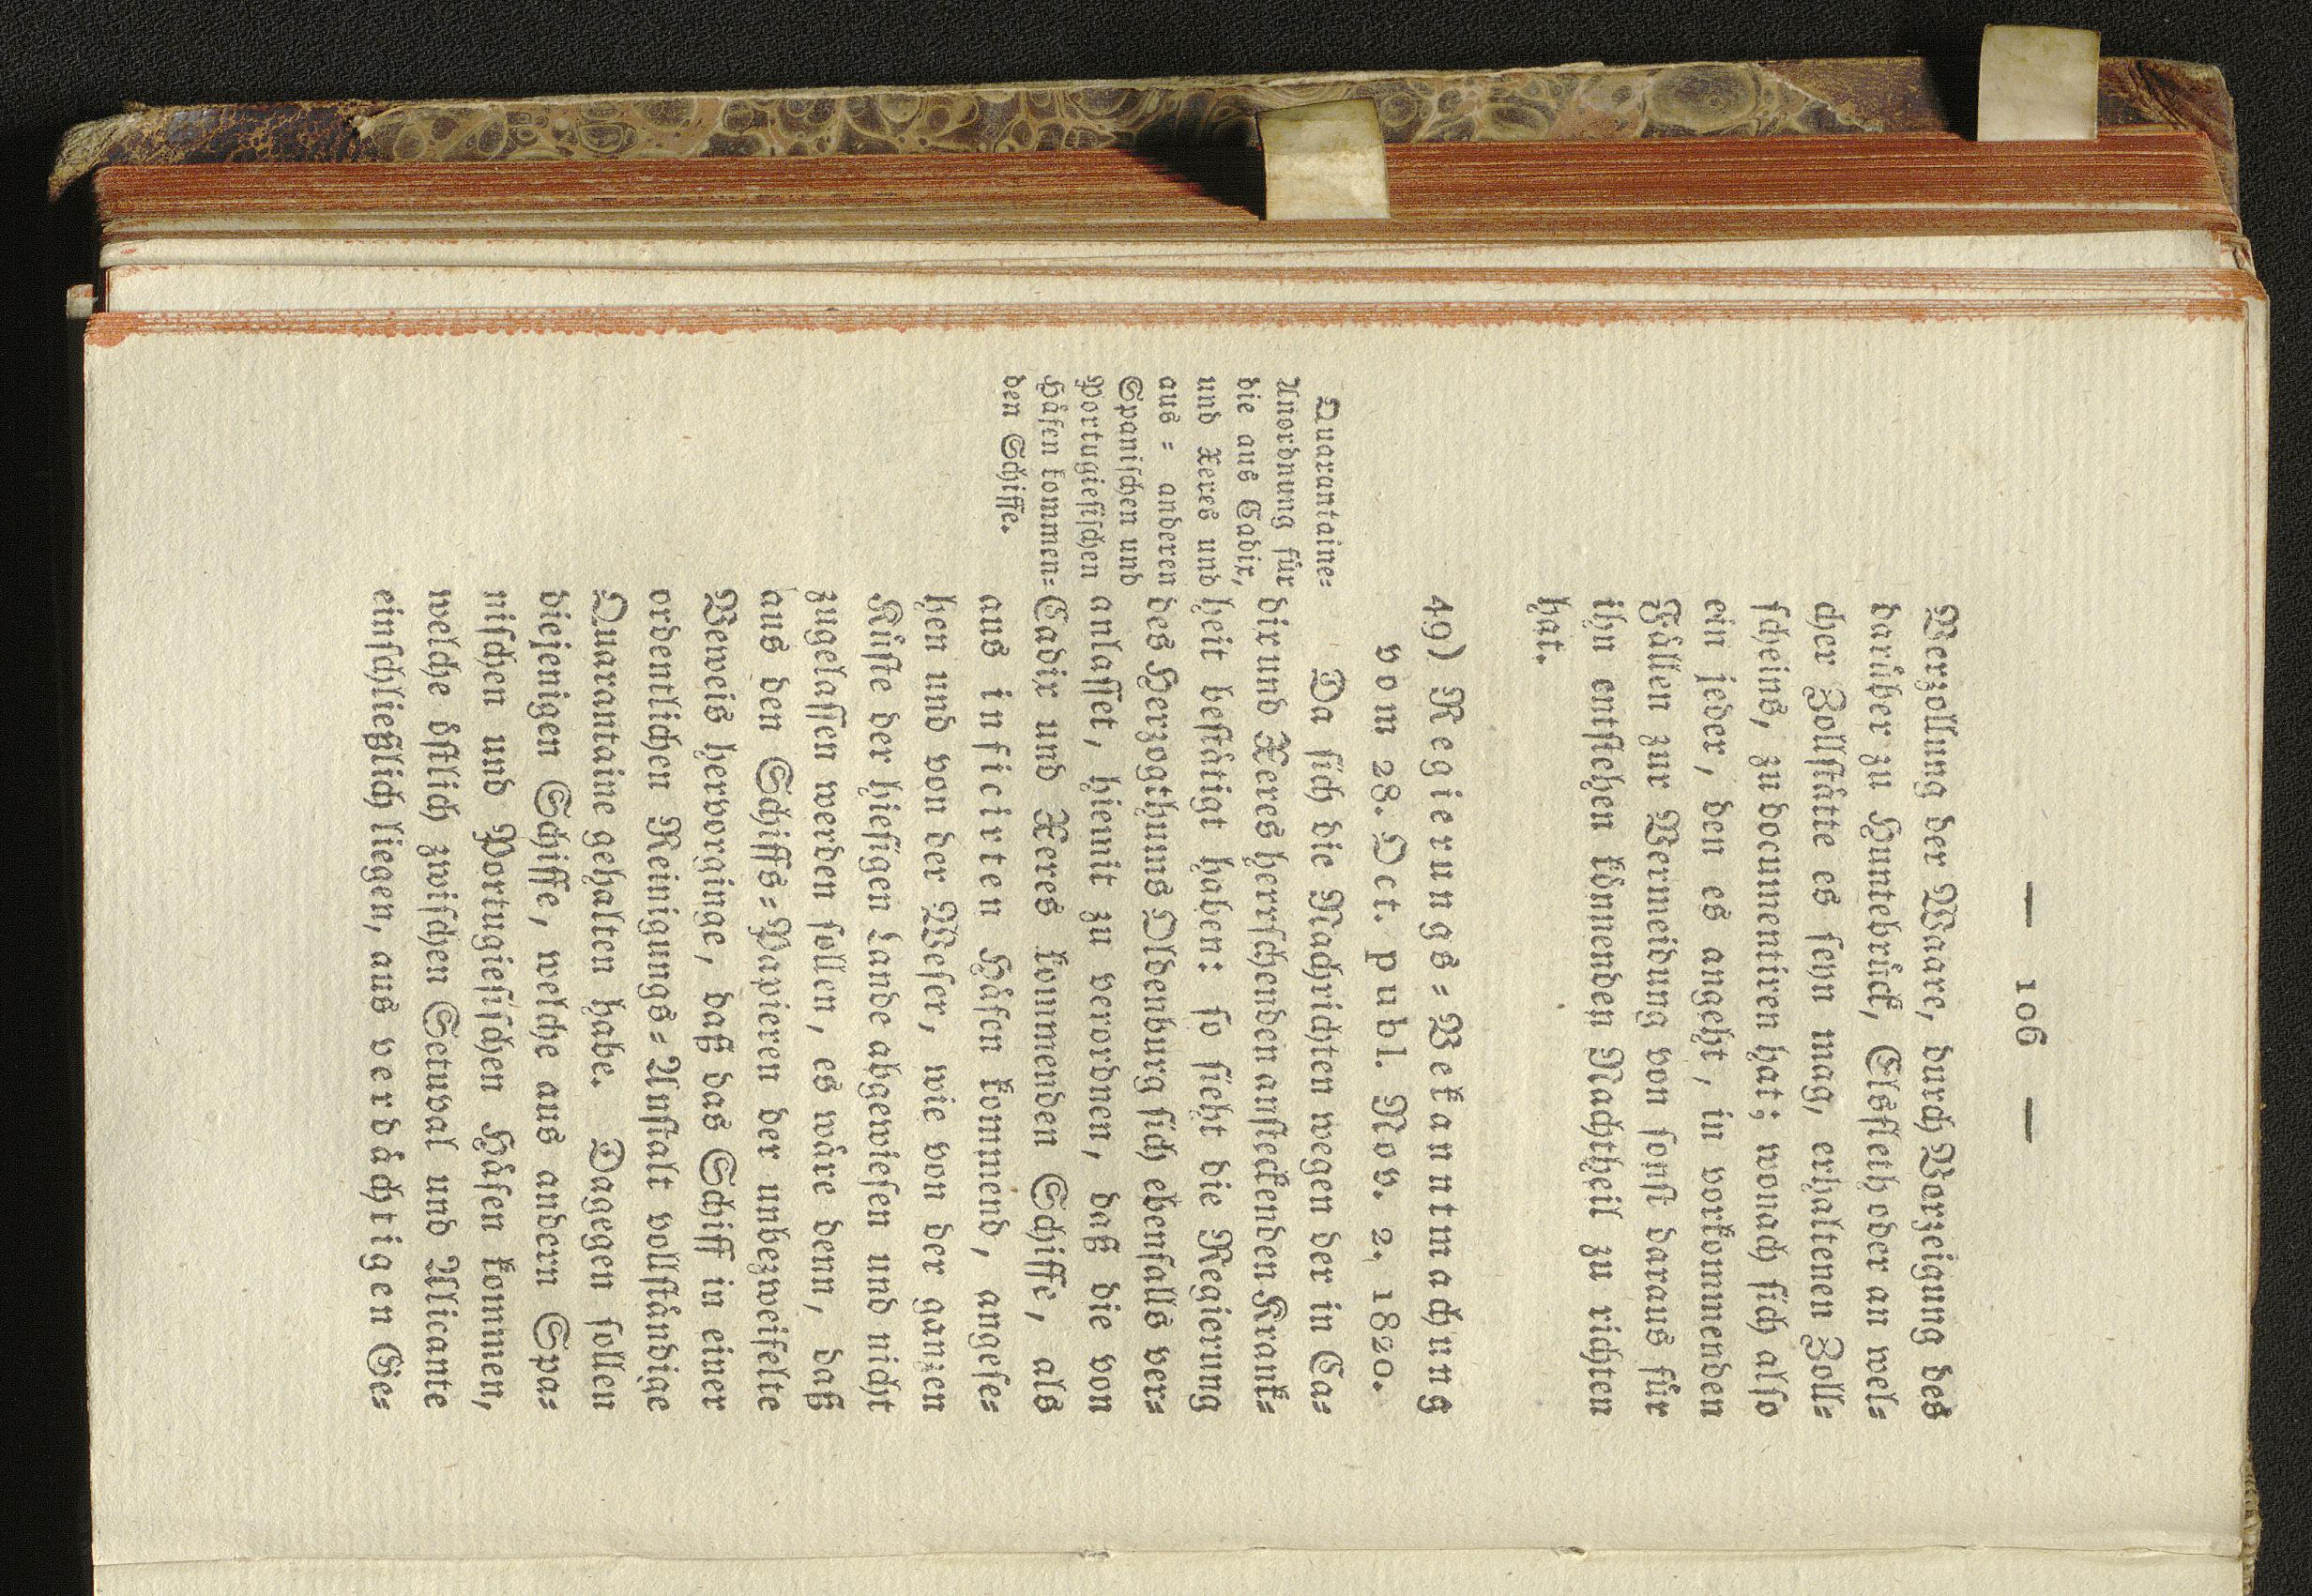 — 106 —
Verzollung der Waare, durch Vorzeigung des
darüber zu Huntebrück, Elsfleth oder an wel-
cher Zollstätte es seyn mag, erhaltenen Zoll-
scheins, zu documentiren hat; wonach sich also
ein jeder, den es angeht, in vorkommenden
Fällen zur Vermeidung von sonst daraus für
ihn entstehen könnenden Nachtheil zu richten
hat.
49) Regierungs-Bekanntmachung
vom 28. Oct. publ. Nov. 2, 1820.
Quarantaine-
Anordnung für
die aus Cadix,
und Xeres und
aus- anderen
Spanischen und
Portugiesischen
Häfen kommen-
den Schiffe.
Da sich die Nachrichten wegen der in Ca-
dix und Xeres herrschenden ansteckenden Krank-
heit bestätigt haben: so sieht die Regierung
des Herzogthums Oldenburg sich ebenfalls ver-
anlasset, hiemit zu verordnen, daß die von
Cadix und Xeres kommenden Schiffe, als
aus inficirten Häfen kommend, angese-
hen und von der Weser, wie von der ganzen
Küste der hiesigen Lande abgewiesen und nicht
zugelassen werden sollen, es wäre denn, daß
aus den Schiffs-Papieren der unbezweifelte
Beweis hervorginge, daß das Schiff in einer
ordentlichen Reinigungs-Anstalt vollständige
Quarantaine gehalten habe. Dagegen sollen
diejenigen Schiffe, welche aus andern Spa-
nischen und Portugiesischen Häfen kommen,
welche östlich zwischen Setuval und Allicante
einschließlich liegen, aus verdächtigen Ge-